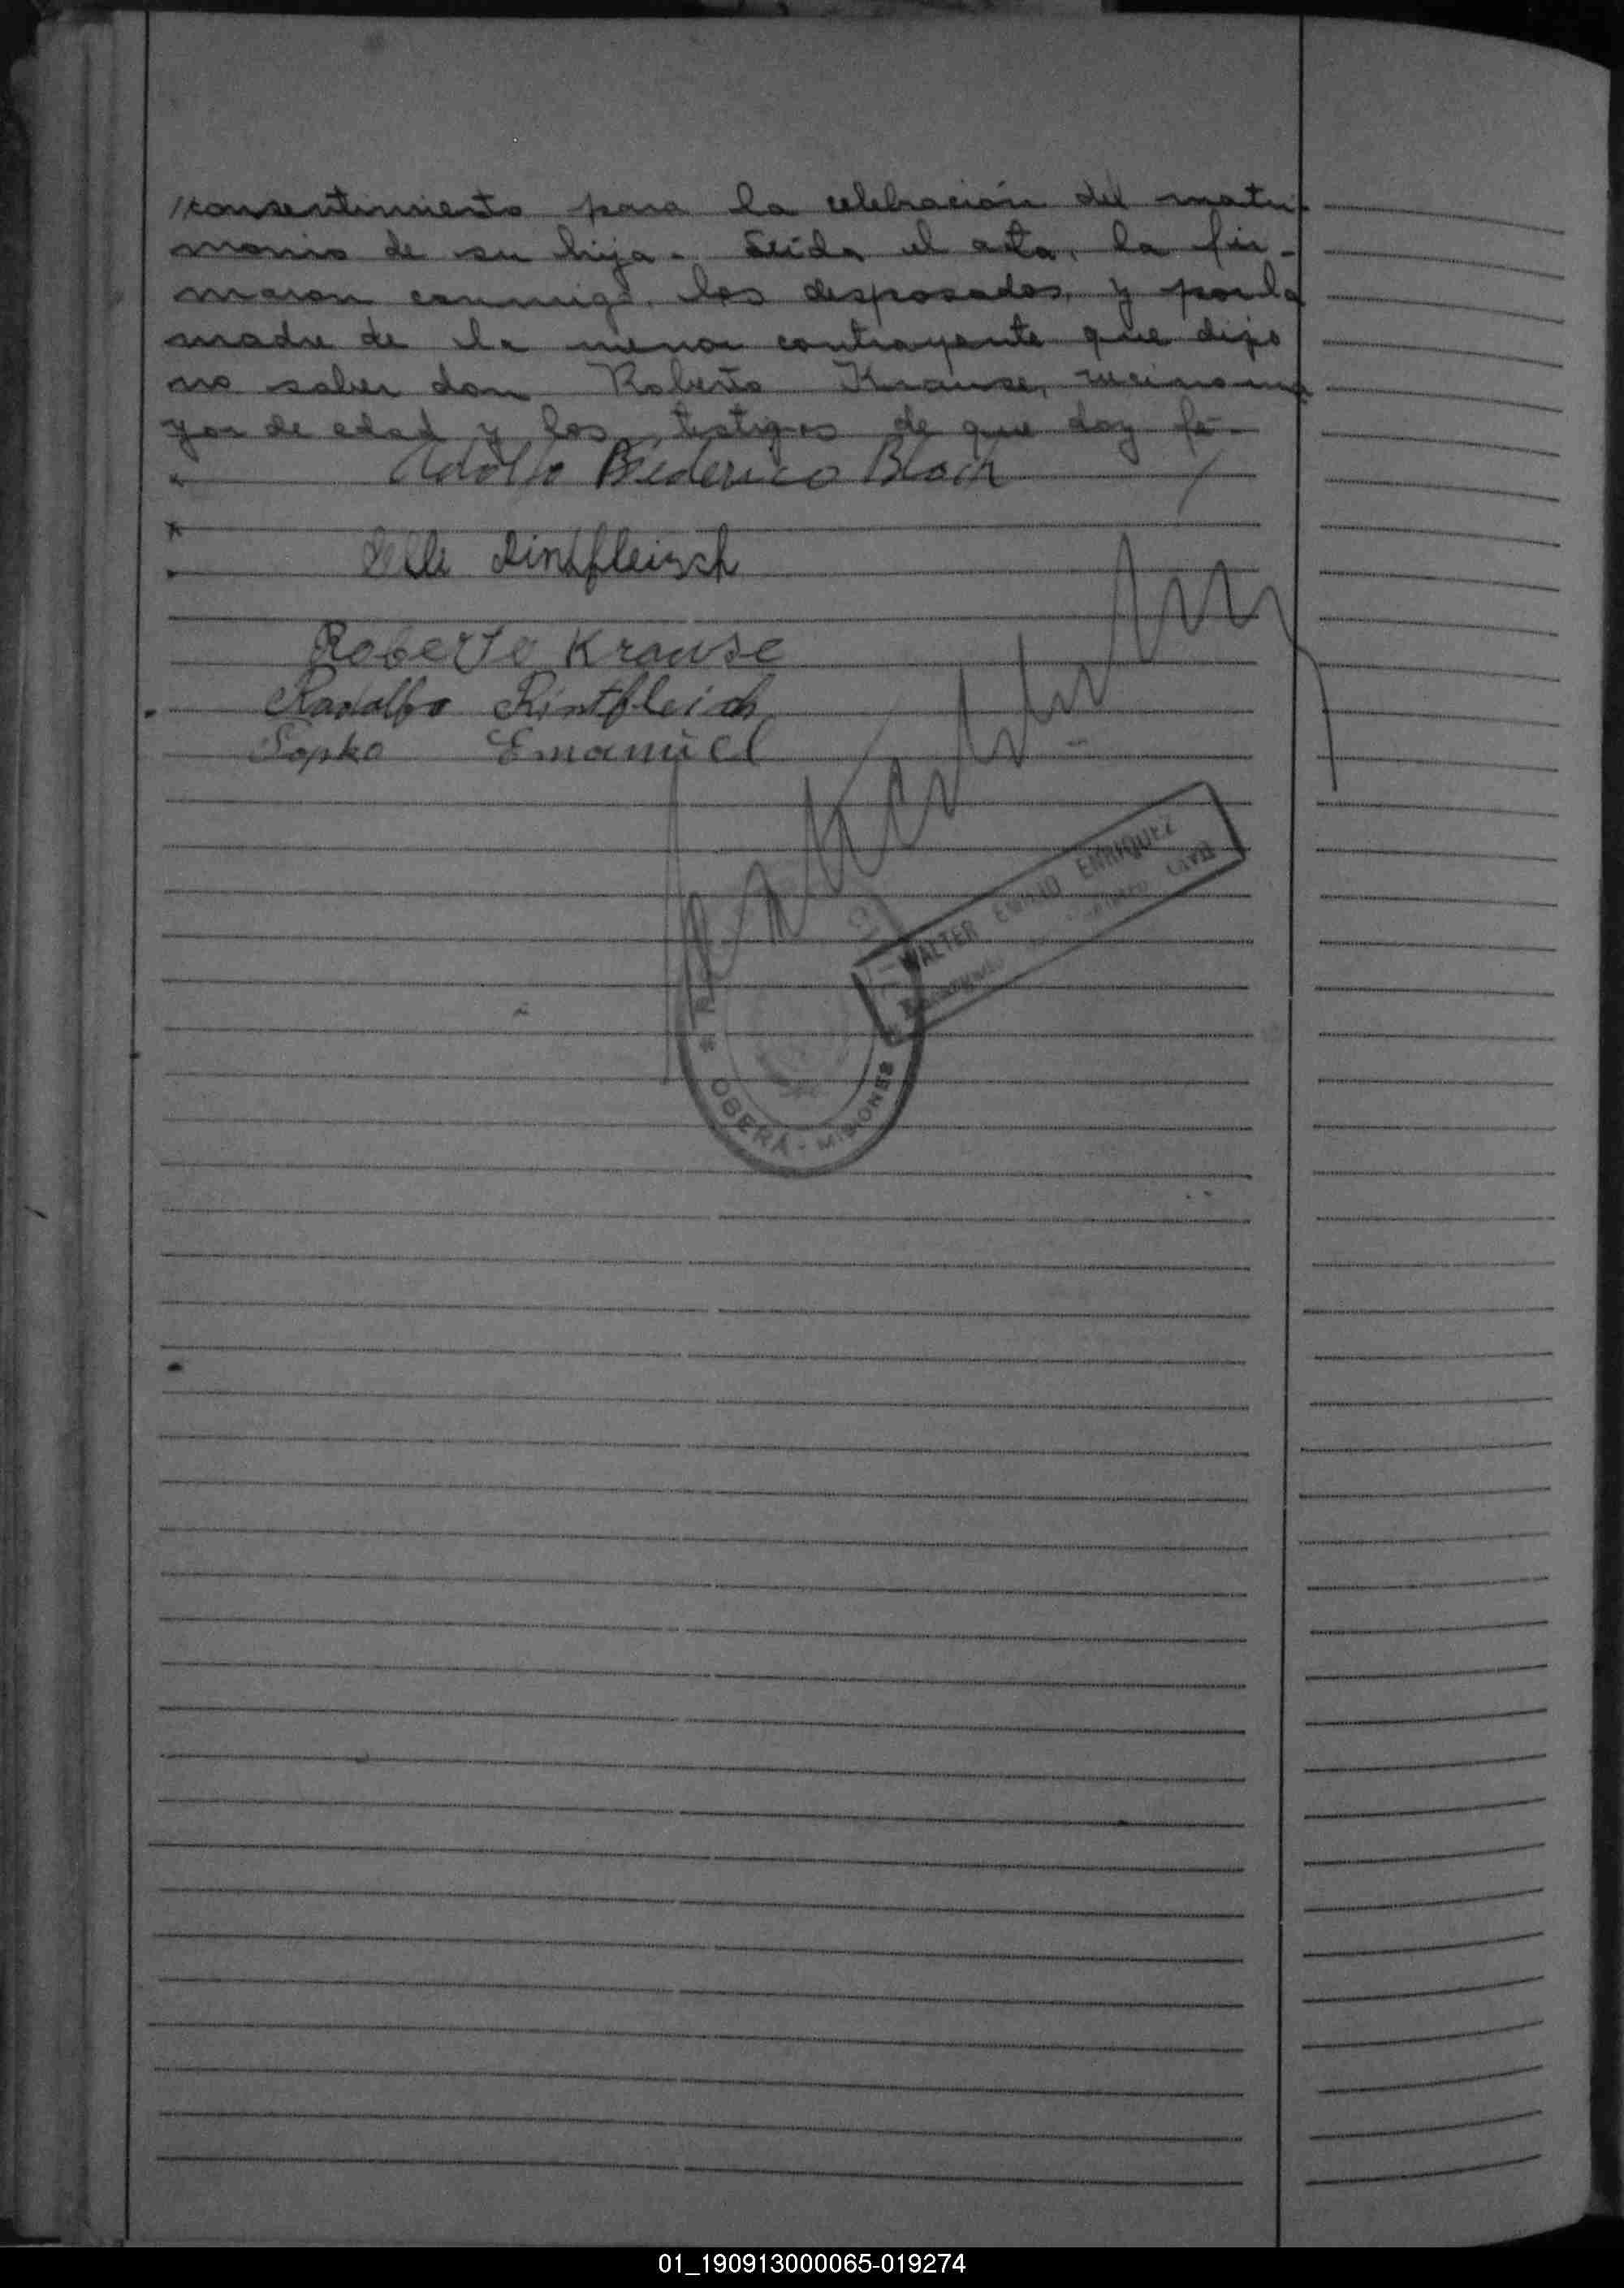 /consentimiento para la celebración del matri-
monio de su hija. Leída el acta, la fir-
maron conmigo, los desposados, y por la
madre de la menor contrayente que dijo
no saber don Roberto Krause, vecino ma
yor de edad y los testigos de que doy fé-
Adolfo Federico Bloch
Rintfleisch
Roberto Krause
Rodolfo Rintfleich
Popko Emanuel
WALTER EWALD ENRIQUEZ
Encargado CIVIL
OBERÁ - MISIONES
01_190913000065-019274